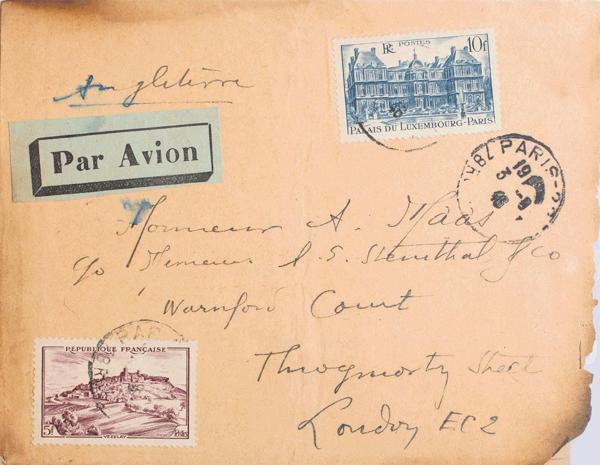 RF POSTES 10f
PALAIS DU LUXEMBOURG-PARIS
Angleterre
Par Avion
PARIS
19
3 - 9
46
Monsieur A. Maas
c/o Messieurs L. S. & Co
Warnford Court
Throgmorty Street
London EC2
REPUBLIQUE FRANÇAISE
5f VEZELAY